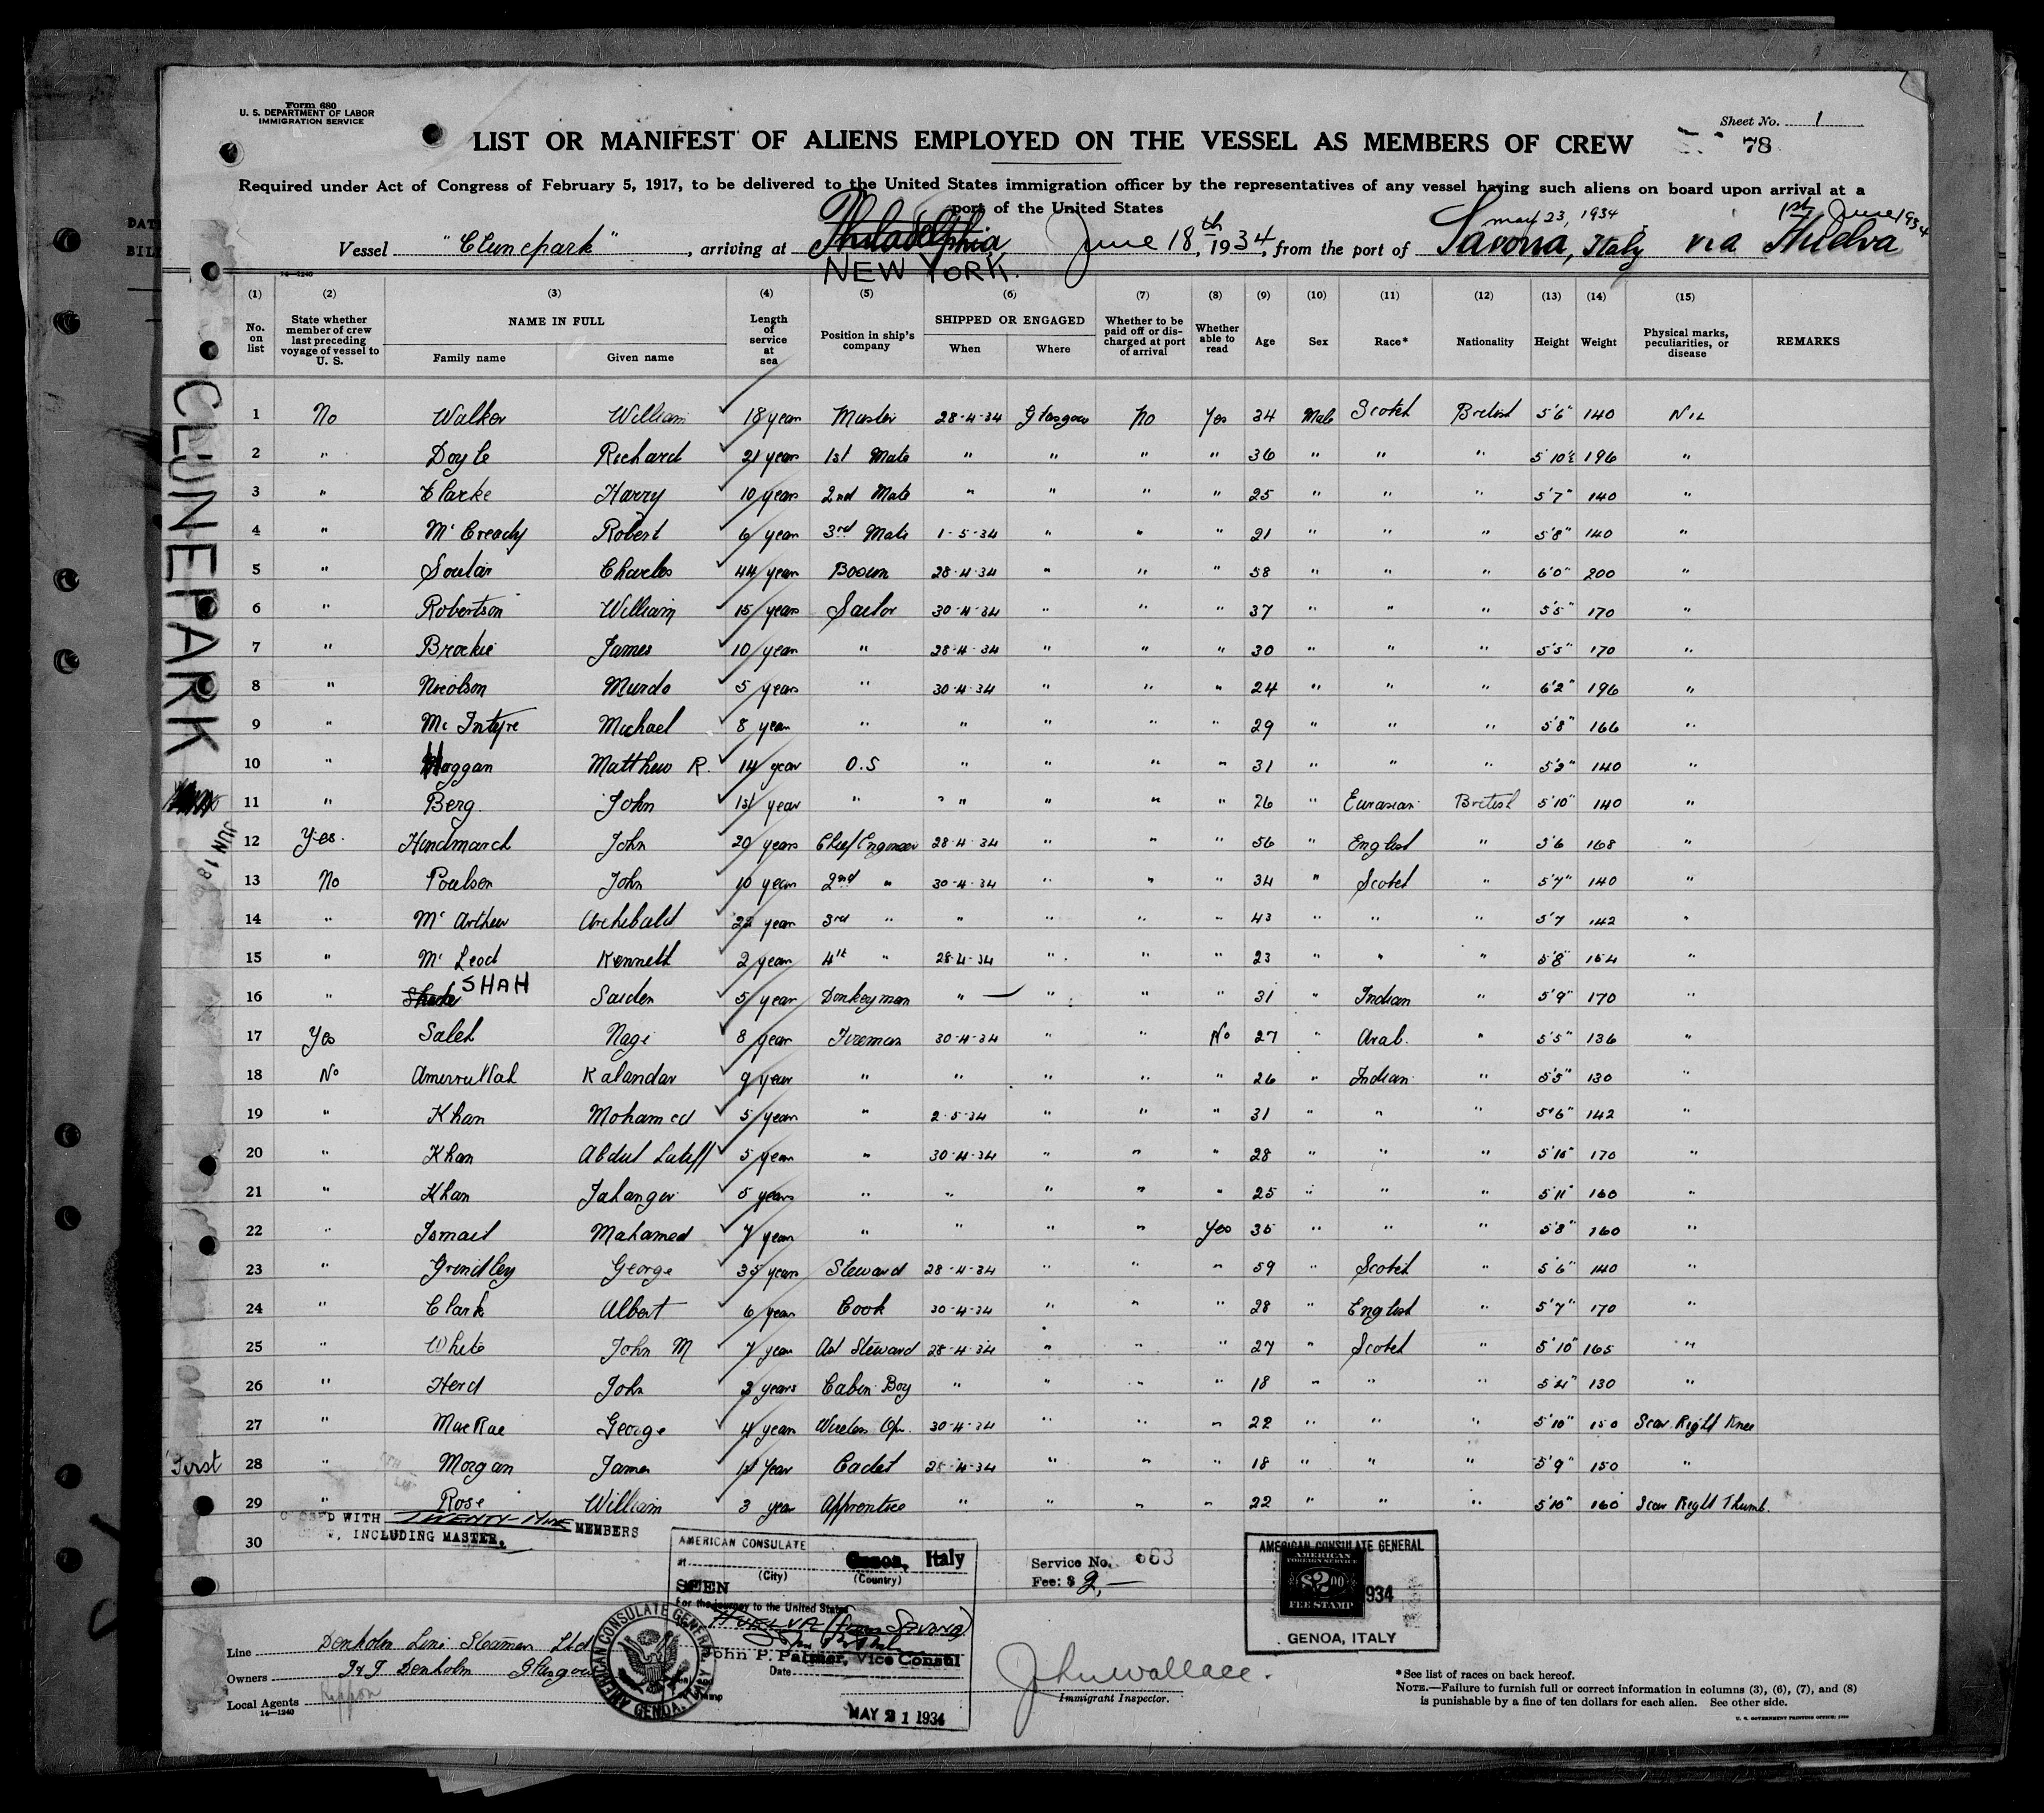 Form 680
U. S. DEPARTMENT OF LABOR
IMMIGRATION SERVICE
Sheet No. 1
LIST OR MANIFEST OF ALIENS EMPLOYED ON THE VESSEL AS MEMBERS OF CREW
78
Required under Act of Congress of February 5, 1917, to be delivered to the United States immigration officer by the representatives of any vessel having such aliens on board upon arrival at a
port of the United States
may 23, 1934 1st June 1934
Vessel "Clunepark", arriving at Philadelphia June 18th, 1934, from the port of Savona, Italy via Huelva
NEW YORK.
14-1240
(1) (2) (3) (4) (5) (6) (7) (8) (9) (10) (11) (12) (13) (14) (15)
No. on list State whether member of crew last preceding voyage of vessel to U. S. NAME IN FULL Family name Given name Length of service at sea Position in ship's company SHIPPED OR ENGAGED When Where Whether to be paid off or discharged at port of arrival Whether able to read Age Sex Race* Nationality Height Weight Physical marks, peculiarities, or disease REMARKS
CLUNEPARK
1 No Walker William 18 year Master 28-4-34 Glasgow No Yes 34 Male Scotch British 5'6" 140 Nil
2 " Doyle Richard 21 year 1st Mate " " " " 36 " " " 5'10½ 196 "
3 " Clarke Harry 10 years 2nd Mate " " " " 25 " " " 5'7" 140 "
4 " McCready Robert 6 year 3rd Mate 1-5-34 " " " 21 " " " 5'8" 140 "
5 " Soutar Charles 44 year Bosun 28-4-34 " " " 58 " " " 6'0" 200 "
6 " Robertson William 15 years Sailor 30-4-34 " " " 37 " " " 5'5" 170 "
7 " Brockie James 10 year " 28-4-34 " " " 30 " " " 5'5" 170 "
8 " Nicolson Murdo 5 years " 30-4-34 " " " 24 " " " 6'2" 196 "
9 " Mc Intyre Michael 8 year " " " " " 29 " " " 5'8" 166 "
10 " Hoggan Matthew R. 14 year O.S " " " " 31 " " " 5'3" 140 "
11 " Berg John 1st year " " " " " 26 " Eurasian British 5'10" 140 "
12 Yes Hindmarch John 20 years Chief Engineer 28-4-34 " " " 56 " English " 5'6 168 "
JUN 18
13 No Poulsen John 10 year 2nd " 30-4-34 " " " 34 " Scotch " 5'7" 140 "
14 " McArthur Archibald 22 year 3rd " " " " " 43 " " " 5'7 142 "
15 " McLeod Kenneth 2 year 4th " 28-4-34 " " " 23 " " " 5'8" 154 "
16 " SHAH Saiden 5 year Donkeyman " " " " 31 " Indian " 5'9" 170 "
17 Yes Saleh Nagi 8 year Fireman 30-4-34 " " No 27 " Arab. " 5'5" 136 "
18 No Amerrullah Kalandar 9 year " " " " " 26 " Indian " 5'5" 130 "
19 " Khan Mohamed 5 year " 2-5-34 " " " 31 " " " 5'6" 142 "
20 " Khan Abdul Lateff 5 year " 30-4-34 " " " 28 " " " 5'10" 170 "
21 " Khan Jahangir 5 years " " " " " 25 " " " 5'11" 160 "
22 " Ismail Mahamed 7 year " " " " Yes 35 " " " 5'8" 160 "
23 " Grindley George 35 years Steward 28-4-34 " " " 59 " Scotch " 5'6" 140 "
24 " Clark Albert 6 year Cook 30-4-34 " " " 28 " English " 5'7" 170 "
25 " White John M 7 year Ast Steward 28-4-34 " " " 27 " Scotch " 5'10" 165 "
26 " Herd John 3 years Cabin Boy " " " " 18 " " " 5'4" 130 "
27 " MacRae George 4 years Wireless Opr. 30-4-34 " " " 22 " " " 5'10" 150 Scar Right Knee
First 28 " Morgan James 1st Year Cadet 28-4-34 " " " 18 " " " 5'9" 150 "
29 " Rose William 3 year Apprentice " " " " 22 " " " 5'10" 160 Scar Right Thumb.
CLOSED WITH TWENTY-NINE MEMBERS
, INCLUDING MASTER.
30
AMERICAN CONSULATE
at Genoa, Italy
(City) (Country)
SEEN
For the journey to the United States
HUELVA (from SAVONA)
John P. Palmer, Vice Consul
Date
MAY 21 1934
AMERICAN CONSULATE GENERAL GENOA, ITALY
Service No. 663
Fee: $ 2,—
AMERICAN CONSULATE GENERAL
AMERICAN FOREIGN SERVICE
$2.00
FEE STAMP
1934
GENOA, ITALY
Line Denholm Line Steamers Ltd
Owners J & J Denholm Glasgow
Local Agents Rippon
14-1240
John Wallace.
Immigrant Inspector.
*See list of races on back hereof.
NOTE.—Failure to furnish full or correct information in columns (3), (6), (7), and (8)
is punishable by a fine of ten dollars for each alien. See other side.